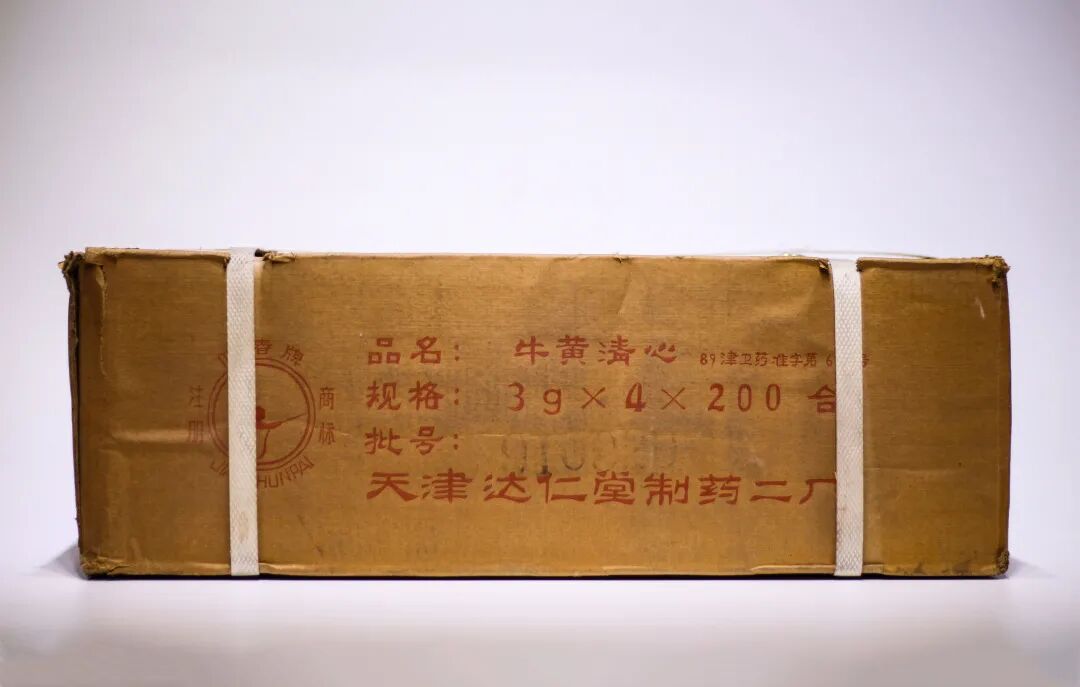 品名: 牛黄清心 89津卫药准字第6 号
规格: 3g×4×200 合
批号:
天津达仁堂制药二厂
春牌
注册
商标
HUNPAI